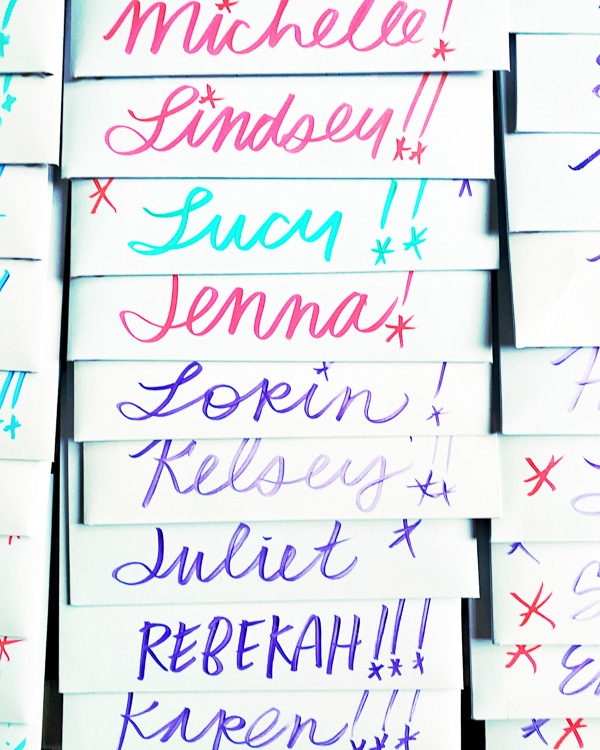 michelle!
Lindsey!!
Lucy!!
Jenna!
Lorin!
Kelsey!!
Juliet
REBEKAH!!!
Karen!!!